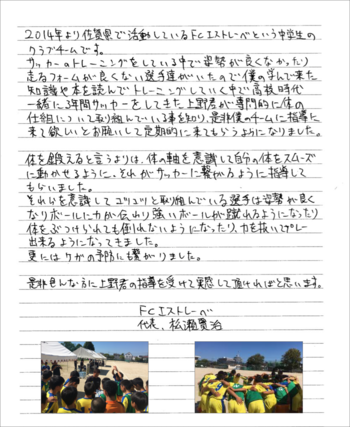 2014年より佐賀県で活動しているFCエストレーベという中学生の
クラブチームです。
サッカーのトレーニングをしている中で姿勢が良くなかったり
走るフォームが良くない選手達がいたので僕の学んで来た
知識や本を読んでトレーニングしていく中で高校時代
一緒に3年間サッカーをしてきた上野君が専門的に体の
仕組について取り組んでいる事を知り、是非僕のチームに指導に
来て欲しいとお願いして定期的に来てもらうようになりました。
体を鍛えると言うよりは、体の軸を意識して自分の体をスムーズ
に動かせるように、それがサッカーに繋がるように指導して
もらいました。
それらを意識してコツコツと取り組んでいる選手は姿勢が良く
なりボールに力が伝わり強いボールが蹴れるようになったり
体をぶつけられても倒れないようになったり、力を抜いてプレー
出来るようになってきました。
更にはケガの予防にも繋がりました。
是非みんな方に上野君の指導を受けて実感して頂ければと思います。
FCエストレーベ
代表、松瀬賢治